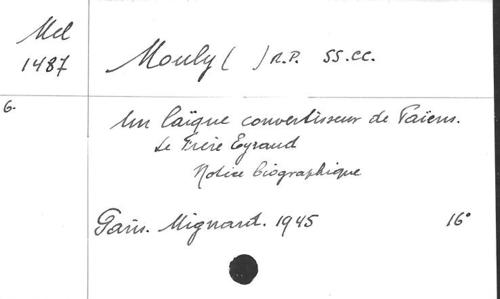 Mel
1487
Mouly ( ) R.P. SS.CC.
6.
Un laïque convertisseur de Païens.
Le Frère Eyraud
Notice biographique
Paris. Mignard. 1945 16°